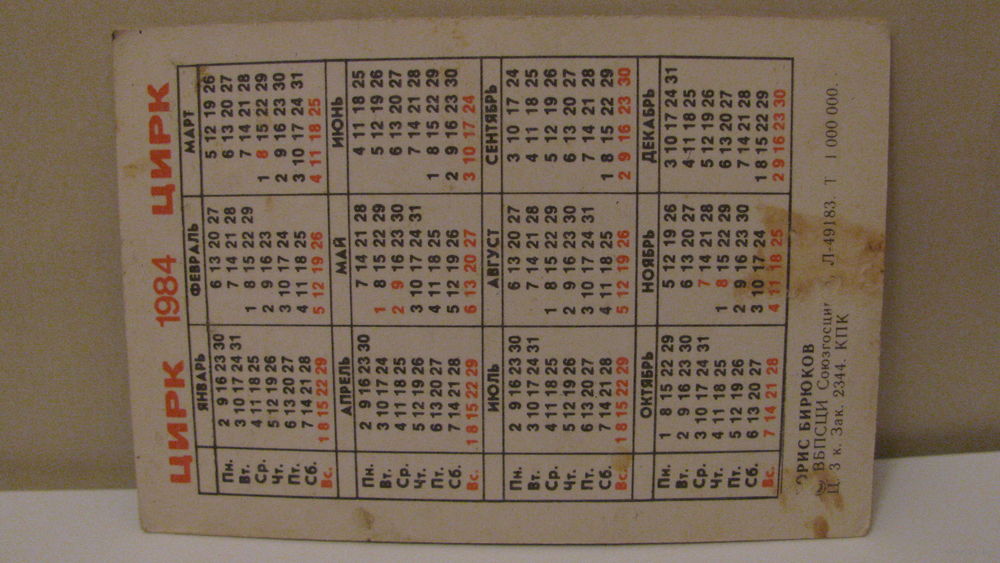 ЦИРК 1984 ЦИРК
ЯНВАРЬ ФЕВРАЛЬ МАРТ
Пн. 2 9 16 23 30 6 13 20 27 5 12 19 26
Вт. 3 10 17 24 31 7 14 21 28 6 13 20 27
Ср. 4 11 18 25 1 8 15 22 29 7 14 21 28
Чт. 5 12 19 26 2 9 16 23 1 8 15 22 29
Пт. 6 13 20 27 3 10 17 24 2 9 16 23 30
Сб. 7 14 21 28 4 11 18 25 3 10 17 24 31
Вс. 1 8 15 22 29 5 12 19 26 4 11 18 25
АПРЕЛЬ МАЙ ИЮНЬ
Пн. 2 9 16 23 30 7 14 21 28 4 11 18 25
Вт. 3 10 17 24 1 8 15 22 29 5 12 19 26
Ср. 4 11 18 25 2 9 16 23 30 6 13 20 27
Чт. 5 12 19 26 3 10 17 24 31 7 14 21 28
Пт. 6 13 20 27 4 11 18 25 1 8 15 22 29
Сб. 7 14 21 28 5 12 19 26 2 9 16 23 30
Вс. 1 8 15 22 29 6 13 20 27 3 10 17 24
ИЮЛЬ АВГУСТ СЕНТЯБРЬ
Пн. 2 9 16 23 30 6 13 20 27 3 10 17 24
Вт. 3 10 17 24 31 7 14 21 28 4 11 18 25
Ср. 4 11 18 25 1 8 15 22 29 5 12 19 26
Чт. 5 12 19 26 2 9 16 23 30 6 13 20 27
Пт. 6 13 20 27 3 10 17 24 31 7 14 21 28
Сб. 7 14 21 28 4 11 18 25 1 8 15 22 29
Вс. 1 8 15 22 29 5 12 19 26 2 9 16 23 30
ОКТЯБРЬ НОЯБРЬ ДЕКАБРЬ
Пн. 1 8 15 22 29 5 12 19 26 3 10 17 24 31
Вт. 2 9 16 23 30 6 13 20 27 4 11 18 25
Ср. 3 10 17 24 31 7 14 21 28 5 12 19 26
Чт. 4 11 18 25 1 8 15 22 29 6 13 20 27
Пт. 5 12 19 26 2 9 16 23 30 7 14 21 28
Сб. 6 13 20 27 3 10 17 24 1 8 15 22 29
Вс. 7 14 21 28 4 11 18 25 2 9 16 23 30
ОРИС БИРЮКОВ
ВБПСЦИ Л-49183. Т 1 000 000.
Ц. 3 к. Зак. 2344. КПК